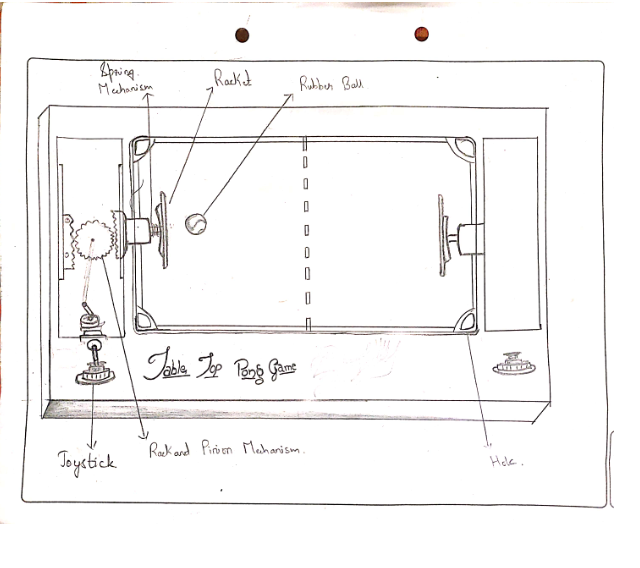 Spring
Mechanism
Racket
Rubber Ball
Table Top Pong Game
Joystick
Rack and Pinion Mechanism.
Hole.